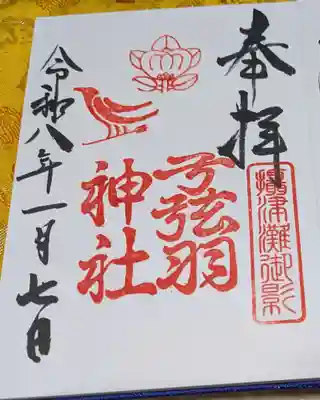 奉拝
摂津灘御影
弓弦羽
神社
令和八年一月七日